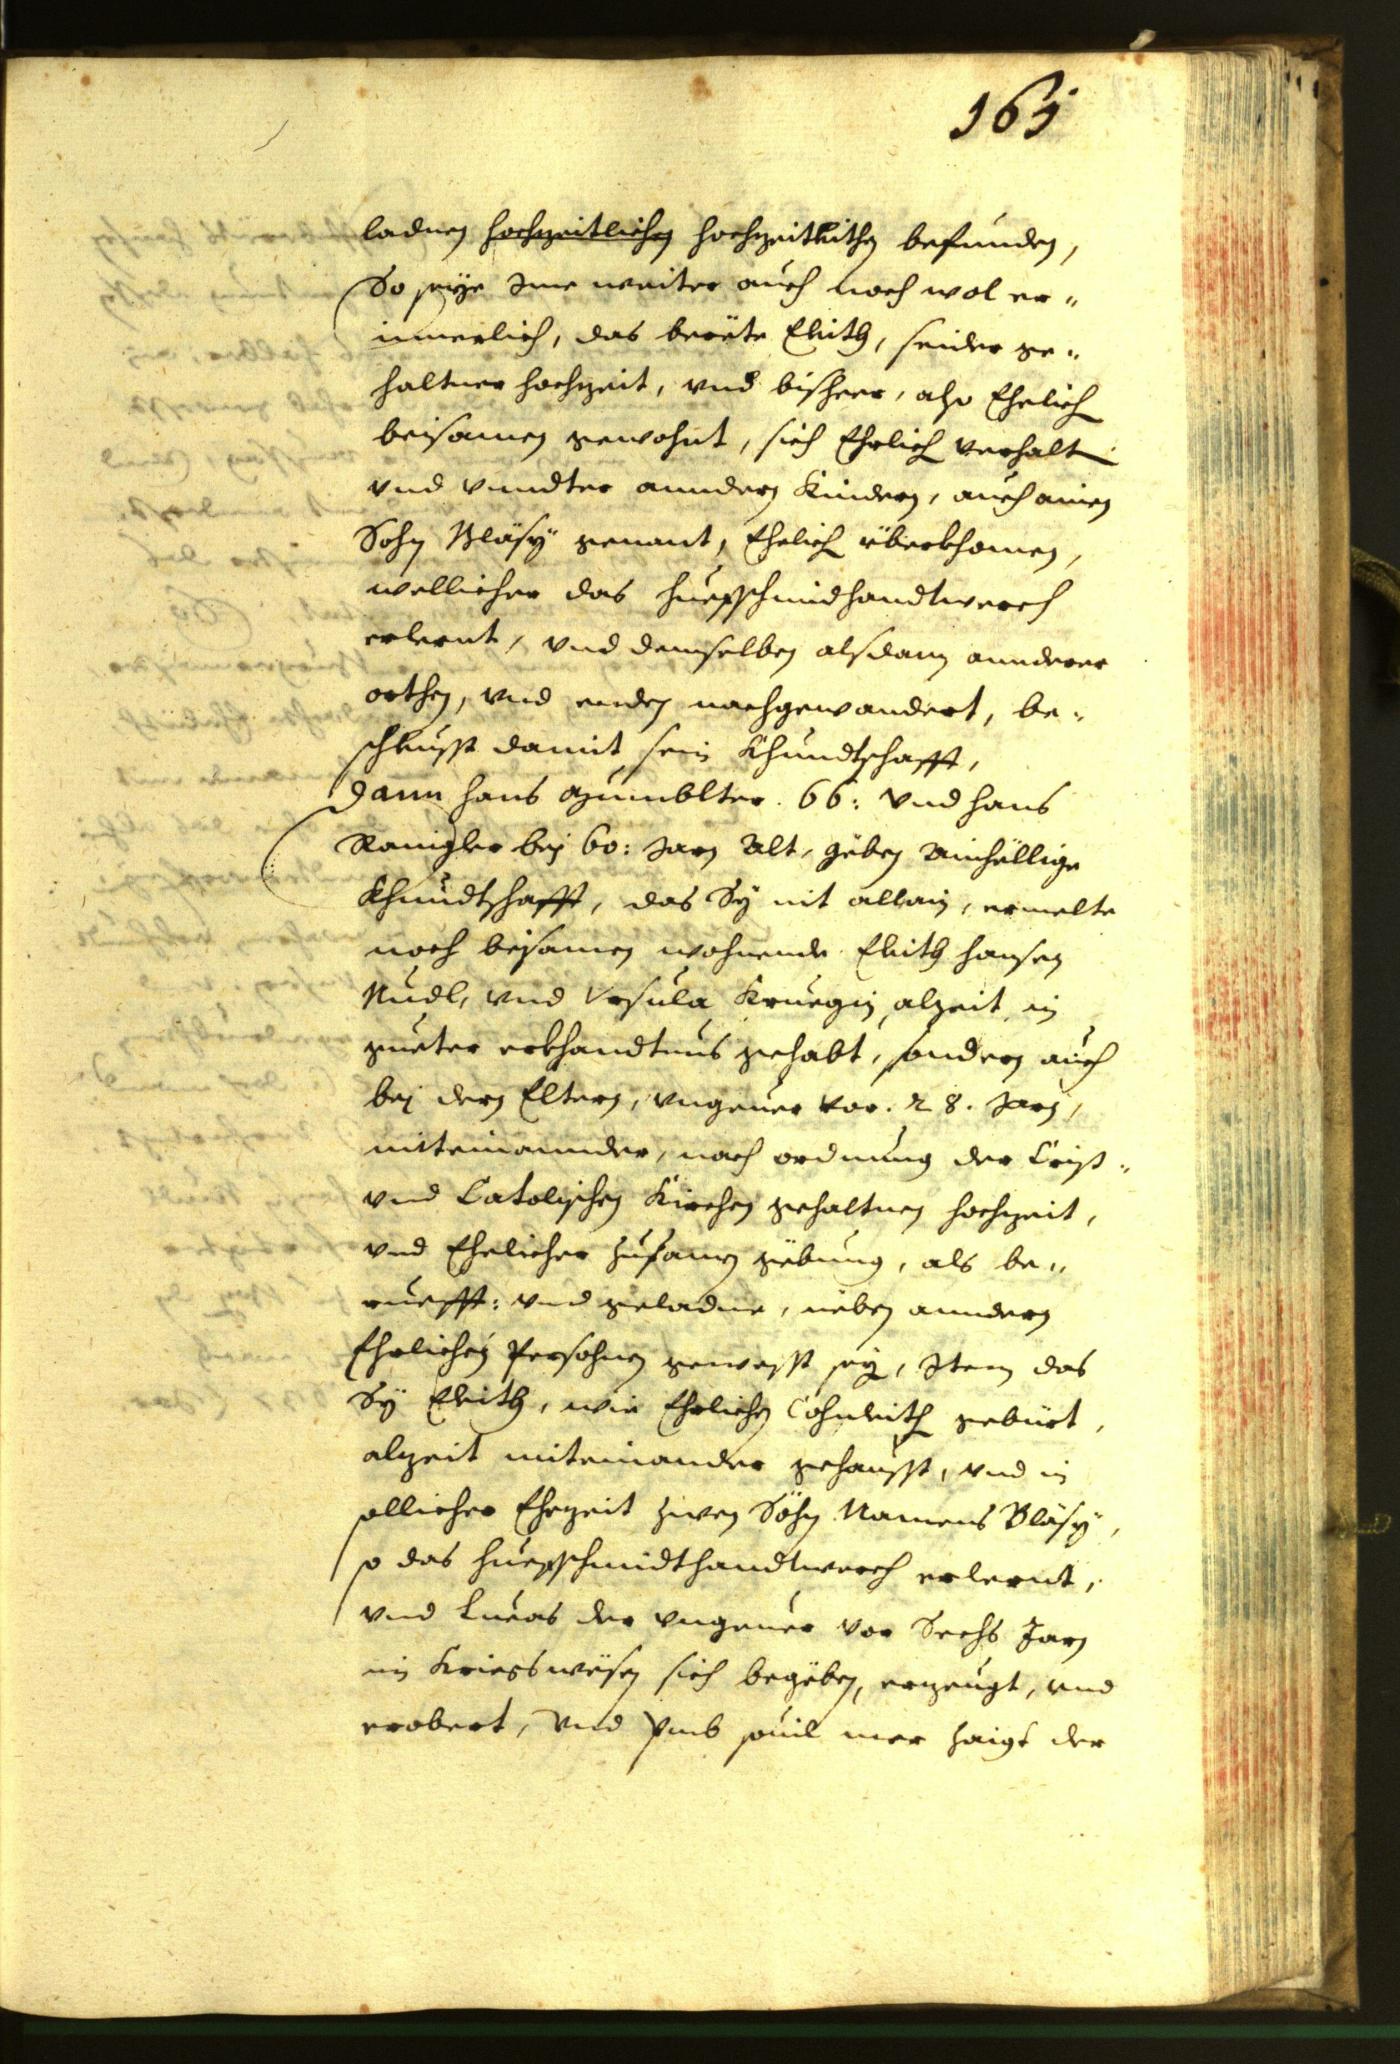 161
ladnen hochzeitlichen hochzeitleithen befunden,
So seye Ime weiter auch noch wol er„
innerlich, das berüte Eleith, seider ge„
haltner hochzeit, vnd bisheer, also Ehelich
beisamen gewohnt, sich Ehrlich verhalten
vnd vnndter anndern Kindern, auch ainen
Sohn Bläsy genant, Ehelich überkhomen,
wellicher das huefschmidhandtwerch
erlernt, vnd demselben alsdann annderer
orthen, vnd enden nachgewandert, be„
schleusst damit sein Khundtschafft,
Dann hans 66: vnd hans
bej 60: Jarn Alt, geben Ainhellige
Khundtschafft, das Sy nit allain, ermelte
noch beisamen wohnende Eleith hansen
Nudl, vnd Vrsula Kruegin, alzeit in
gueter erkhandtnus gehabt, sondern auch
bej dern Eltern, vngeuer vor. 28. Jarn,
miteinannder, nach ordnung der Crist„
vnd Catolischen Kirchen gehaltnen hochzeit,
vnd Ehelicher zusamen gebung, als be„
rüefft: vnd geladne, neben anndern
Ehrlichen Persohnen gewesst sey, Item das
Sy Eleith, wie Ehrlichen Eheleith gebürt,
alzeit miteinander gehausst, vnd in
sollicher Ehezeit zwen Söhn Namens Bläsy,
so das huefschmidthandtwerch erlernt,
vnd Lucas der vngeuer vor Sechs Jarn
in Kriegswesen sich begeben, erzeugt, vnd
erobert, Vnd vmb souil mer zaigt der